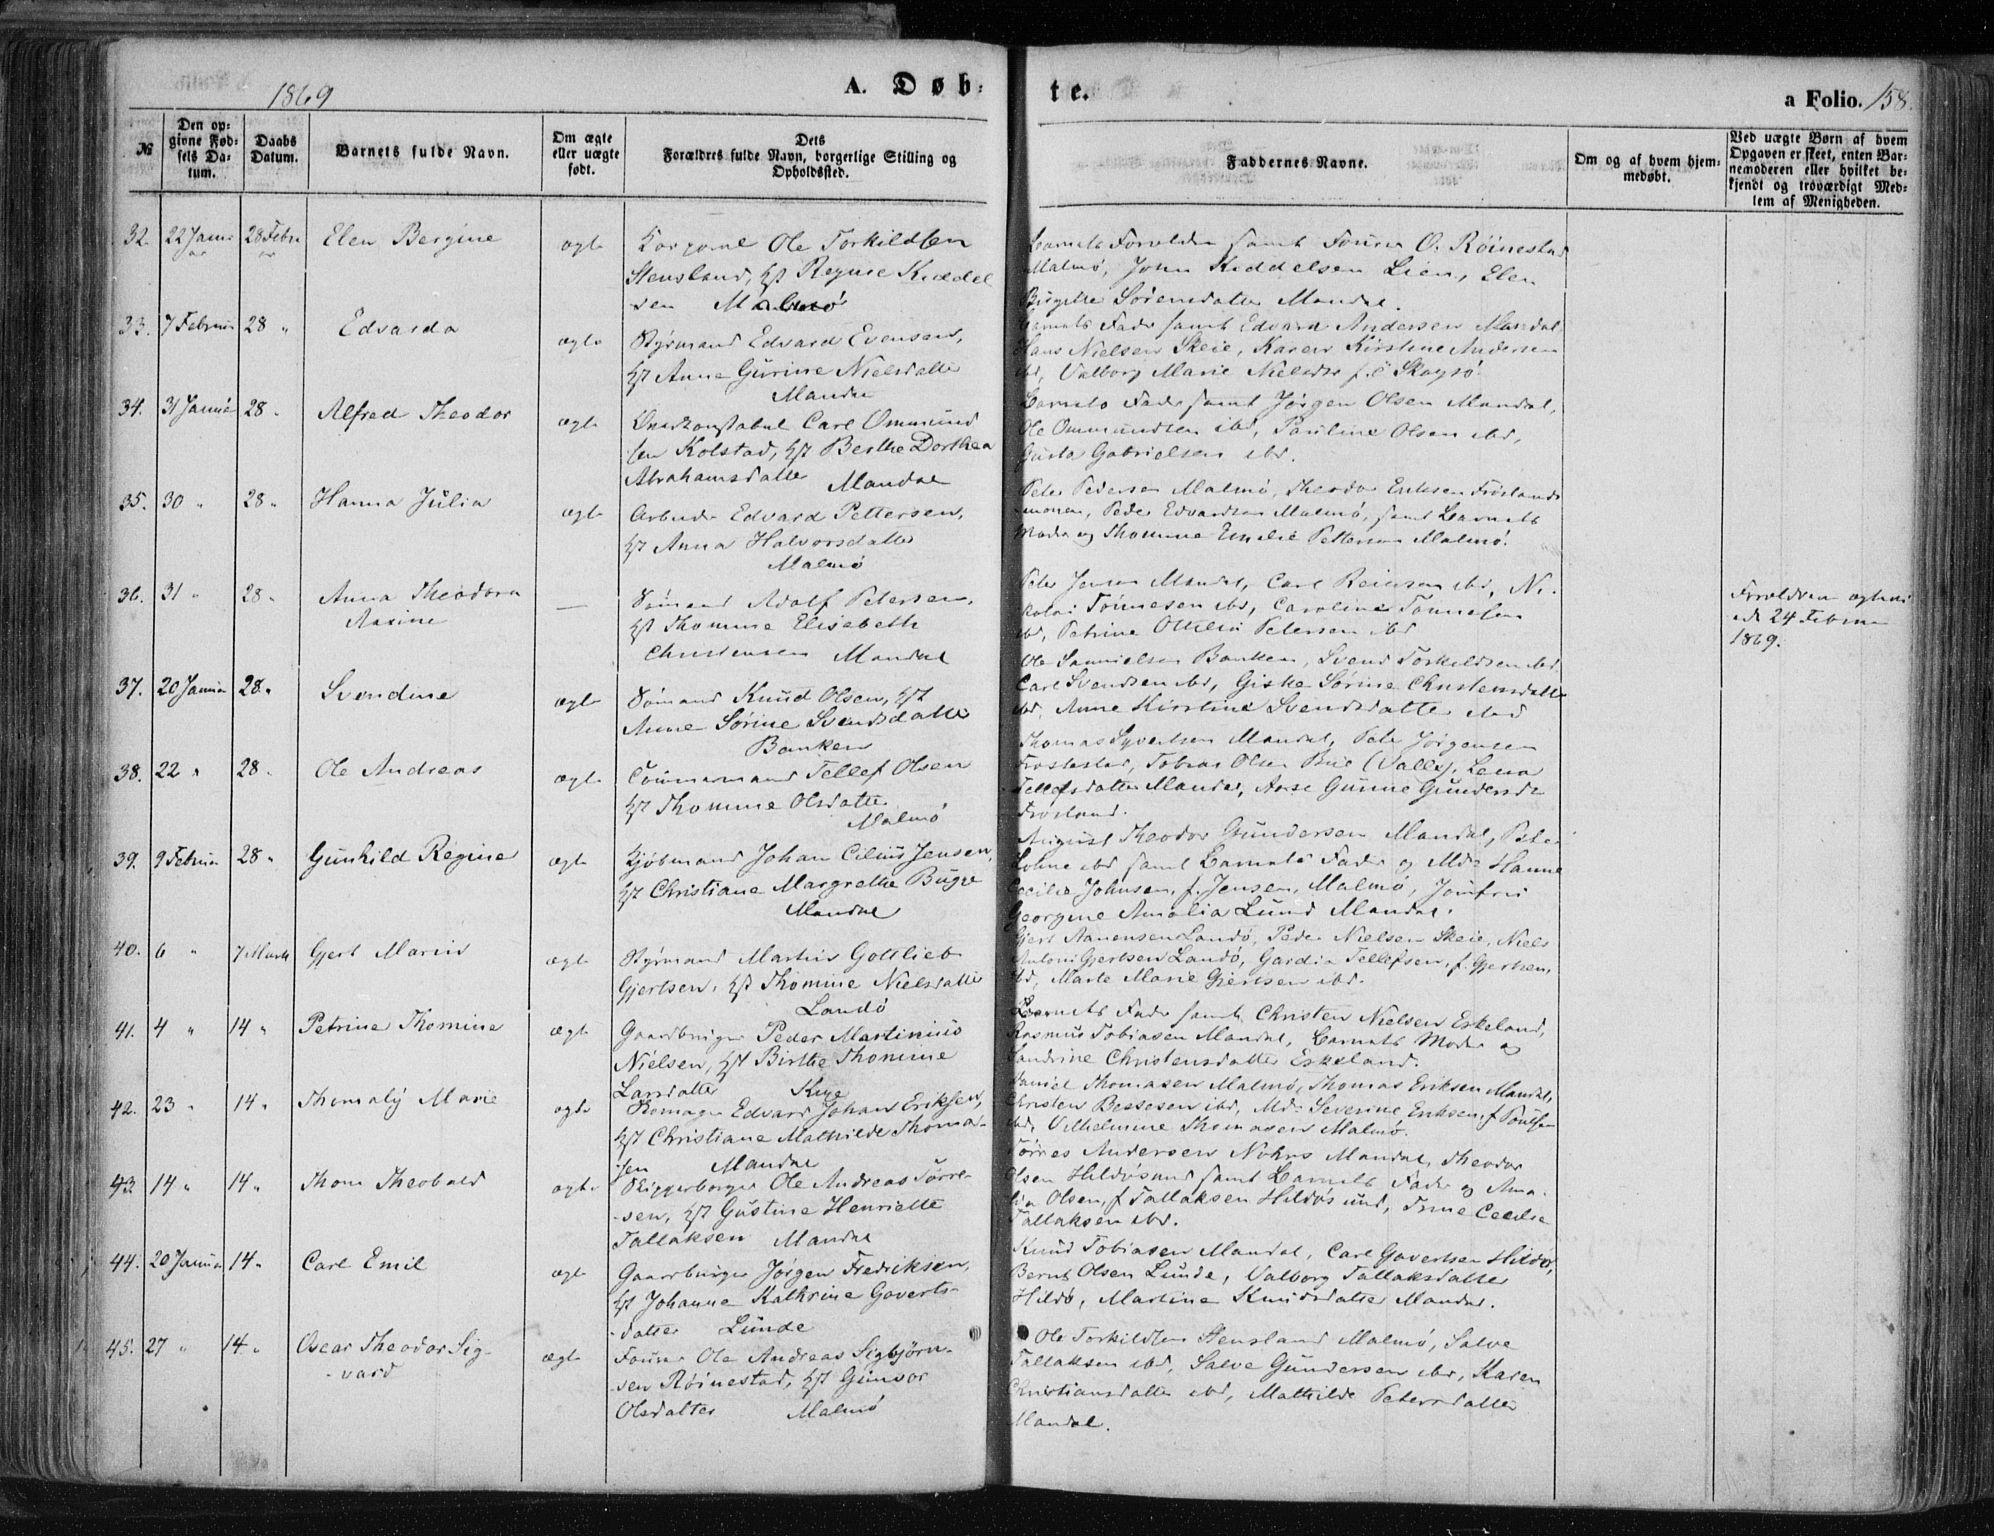 1869
A. Døb-
te.
a Folio. 158.
№
Den op-
givne Fød-
sels Da-
tum.
Daabs
Datum.
Barnets fulde Navn.
Om ægte
eller uægte
født.
Dets
Forældres fulde Navn, borgerlige Stilling og
Opholdssted.
Faddernes Navne.
Om og af hvem hjem-
medøbt.
Ved uægte Børn af hvem
Opgaven er skeet, enten Bar-
nemoderen eller hvilket be-
kjendt og troværdigt Med-
lem af Menigheden.
32. 22 Janu- 28 Febru-
ar ar
Elen Bergine
ægte
Ole Torkildsen
Stensland, Regine Kieddel
sen Malmø
Barnets Forældre samt O. Röinestad
Malmø, John Kieddelsen Lien, Elen
Birgitte Sörensdatter Mandal.
33. 7 Februar 28 "
Edvarda
ægte
Styrmand Edvard Evensen,
Anne Gurine Nielsdatter
Mandal
Barnets Fader samt Edvard Andersen Mandal,
Hans Nielsen Skeie, Karen Kirstine Andersen
ibd, Valborg Marie Nielsdtr
34. 31 Januar 28 "
Alfred Theodor
ægte
Carl Ommund
sen Kolstad, Berthe Dorthea
Abrahamsdatter Mandal
Barnets Fader samt Jörgen Olsen Mandal,
Ole Ommundsen ibd, Pauline Olsen ibd,
Gusta Gabrielsen ibd.
35. 30 " 28 "
Hanna Julia
ægte
Arbeider Edvard Pettersen,
Anna Halvorsdatter
Malmø
Peter Pedersen Malmø, Theodor Eriksen Frøslands
monen, Peder Edvardsen Malmø, samt Barnets
Moder og Thomine Emelie Pettersen Malmø.
36. 31 " 28 "
Anna Theodora
Rasine
—
Sømand Adolf Petersen,
Thomine Elisabeth
Christensen Mandal
Peter Jensen Mandal, Carl Reiersen ibd, Ni-
kolai Tønnesen ibd, Caroline Tønnesen
ibd, Petrine Ottilia Petersen ibd
Forældrene
24 Februar
1869.
37. 20 Januar 28 "
Svendine
ægte
Sømand Knud Olsen,
Anne Sörine Svendsdatter
Banken
Ole Samuelsen Banken, Svend Torkildsen ibd,
Carl Svendsen ibd, Giske Sörine Christensdatter
ibd, Anne Kirstine Svendsdatter ibd
38. 22 " 28 "
Ole Andreas
ægte
Tømmermand Tellef Olsen
Thomine Olsdatter
Malmø
Thomas Syvertsen Mandal, Peter Jörgensen
Frøstestad, Tobias Olsen Lena
Tellefsdatter Mandal, Aase Gunders
Frøsland.
39. 9 Februar 28 "
Gunhild Regine
ægte
Kjöbmand Johan Cilius Jensen,
Christiane Margrethe Bugge
Mandal
August Theodor Gundersen Mandal, Peter
Lohne ibd samt Barnets Fader og Md: Hanne
Cecilie Johnsen, f. Jensen, Malmø, Jomfru
Georgine Amalia Lund Mandal.
40. 6 " 7 Marts
Gjert Marius
ægte
Styrmand Martius Gottlieb
Gjertsen, Thomine Nielsdatter
Landö
Gjert Aanensen Landö, Peder Nielsen Skeie, Niels
Antoni Gjertsen Landö, Gardia Tellefsen, f. Gjertsen,
ibd, Marte Marie Gjertsen ibd.
41. 4 " 14 "
Petrine Thomine
ægte
Gaardbruger Peder Martinius
Nielsen, Birthe Thomine
Larsdatter Skeie
Barnets Fader samt Christen Nielsen Eskeland,
Rasmus Tobiasen Mandal, Barnets Moder og
Sandrine Christensdatter Eskeland.
42. 23 " 14 "
Thomaly Marie
ægte
Skomager Edvard Johan Eriksen,
Christiane Mathilde Thoma-
sen Mandal
Daniel Thomasen Malmø, Thomas Eriksen Mandal,
Christen Bessesen ibd, Md: Severine Eriksen, f.
ibd, Vilhelmine Thomasen Malmø.
43. 14 " 14 "
Thom Theobald
ægte
Skipperborger Ole Andreas Törre-
sen, Gustine Henriette
Tallaksen Mandal
Törres Andersen Nohrs Mandal, Theodor
Olsen Hildøsund samt Barnets Fader og Ama-
lia Olsen, f. Tallaksen Hildøsund, Trine Cecilie
Tallaksen ibd.
44. 20 Januar 14 "
Carl Emil
ægte
Gaardbruger Jörgen Fredriksen,
Johanne Kathrine Goverts-
datter Lunde
Knud Tobiasen Mandal, Carl Govertsen Hildø,
Bernt Olsen Lunde, Valborg Tallaksdatter
Hildø, Martine Knudsdatter Mandal.
45. 27 " 14 "
Oscar Theodor Sig-
vard
ægte
Ole Andreas Sigbjörn-
sen Röinestad, Gunvor
Olsdatter Malmø
Ole Torkildsen Stensland Malmø, Salve
Tallaksen ibd, Salve Gundersen ibd, Karen
Christiansdatter ibd, Mathilde Petersdatter
Mandal.